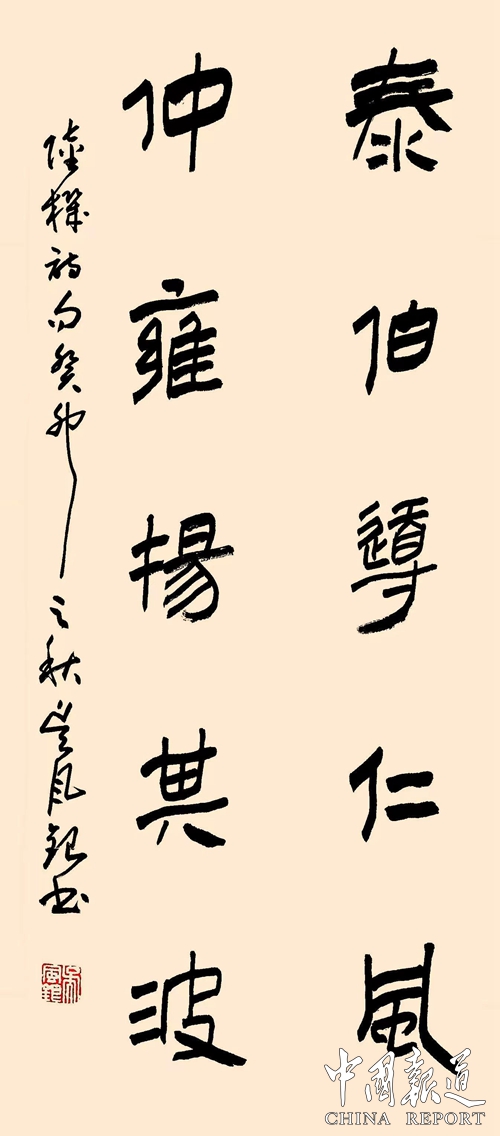 泰伯導仁風
仲雍揚其波
陸機詩句癸卯之秋吳風書
中國報道
CHINA REPORT